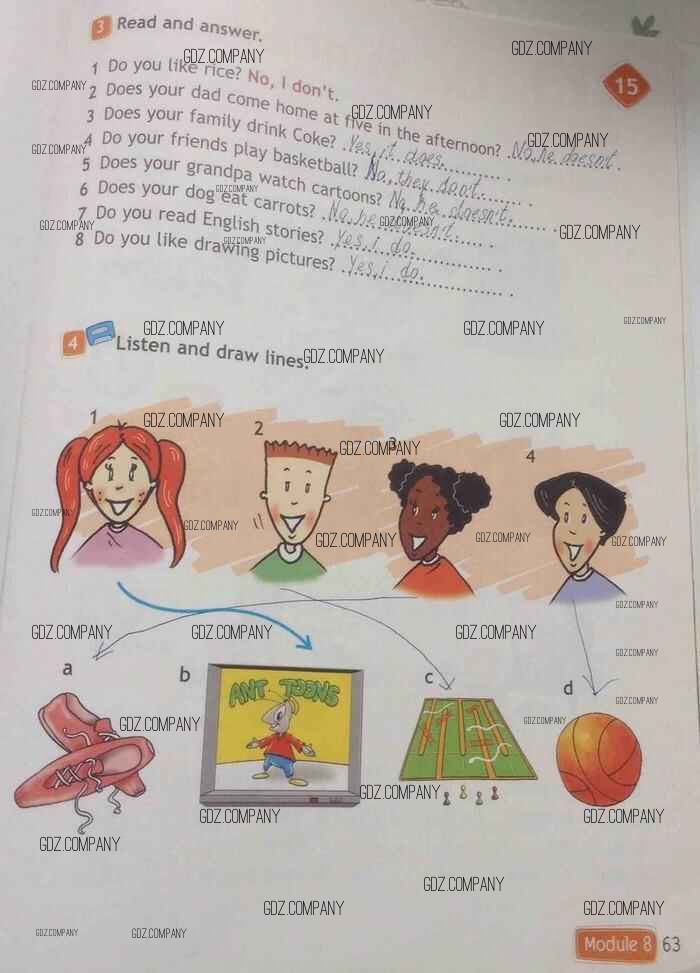 3 Read and answer.
15
1 Do you like rice? No, I don't.
2 Does your dad come home at five in the afternoon? No, he doesn't.
3 Does your family drink Coke? Yes, it does.
4 Do your friends play basketball? No, they don't.
5 Does your grandpa watch cartoons? No, he doesn't.
6 Does your dog eat carrots? No, he
7 Do you read English stories? Yes, i do.
8 Do you like drawing pictures? Yes, i do.
4 Listen and draw lines.
1 2 3 4
a b c d
ANT TOONS
Module 8 63
GDZ.COMPANY